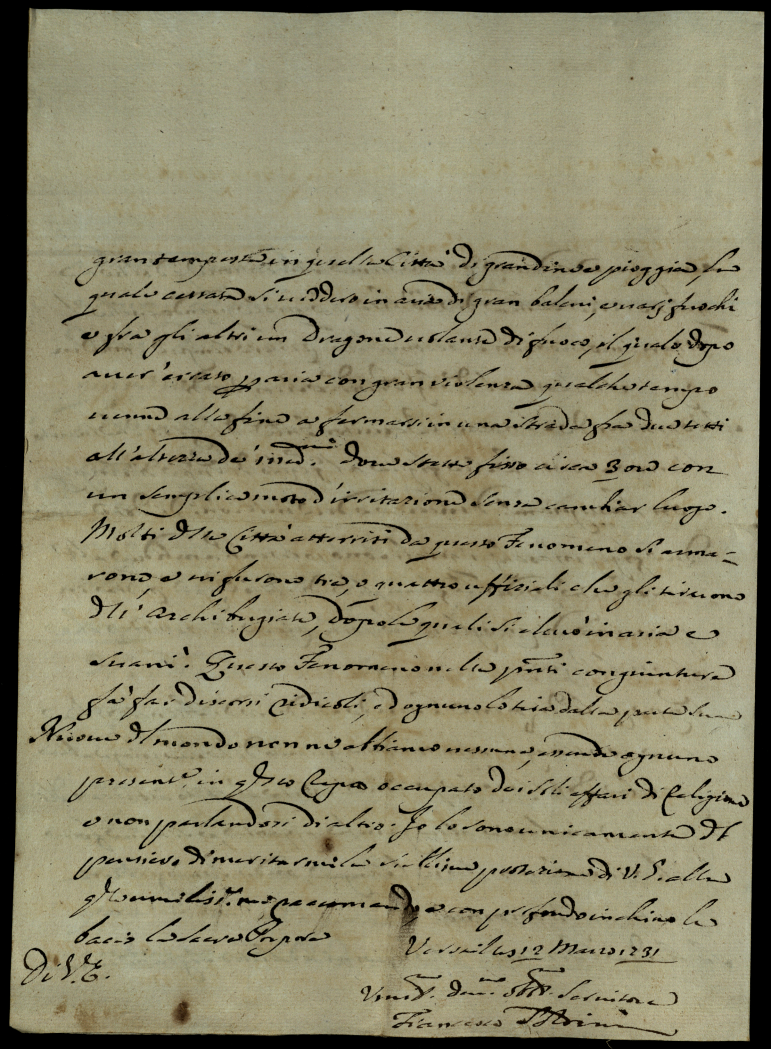 gran tempesta in quella Città di grandine e pioggia, la
quale cessata si viddero in aria di gran baleni, e varj fuochi
e fra gli altri un Dragone volante di fuoco, il quale dopo
aver per aria con gran violenza qualche tempo
venne alla fine a fermarsi in una strada fra due tetti
all'altezza de' med.mi dove stette fisso circa 3 ore con
un semplice moto d' senza cambiar luogo.
Molti della Città atterriti da questo Fenomeno si arma=
rono, e vi furono tre, o quattro uffiziali che gli tirarono
dell' Archibugiate, dopo le quali si elevò in aria e
svanì. Questo Fenomeno nelle pnti congiunture
fà far discorsi ridicoli, ed ognuno lo tira dalla parte sua
Nuove del mondo non ne abbiamo nessune, essendo ognuno
presente in qsto occupato dei soli affari di Religione
e non parlandosi di altro: Io lo sono unicamente del
pensiero di meritarmi la protezione di V. E. alla
qle umiliss.te me raccomando, e con profondo inchino le
bacio la Sacra Porpora
Versailles 12 Marzo 1731
Di V. E.
Servitore
Francesco